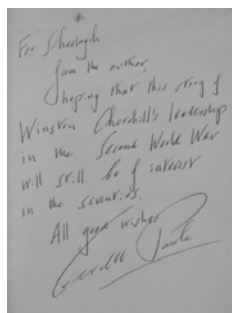 For Scheelagh
from the author,
hoping that this story of
Winston Churchill's leadership
in the Second World War
will still be of interest
in the seventies.
All good wishes
Gerald Pawle